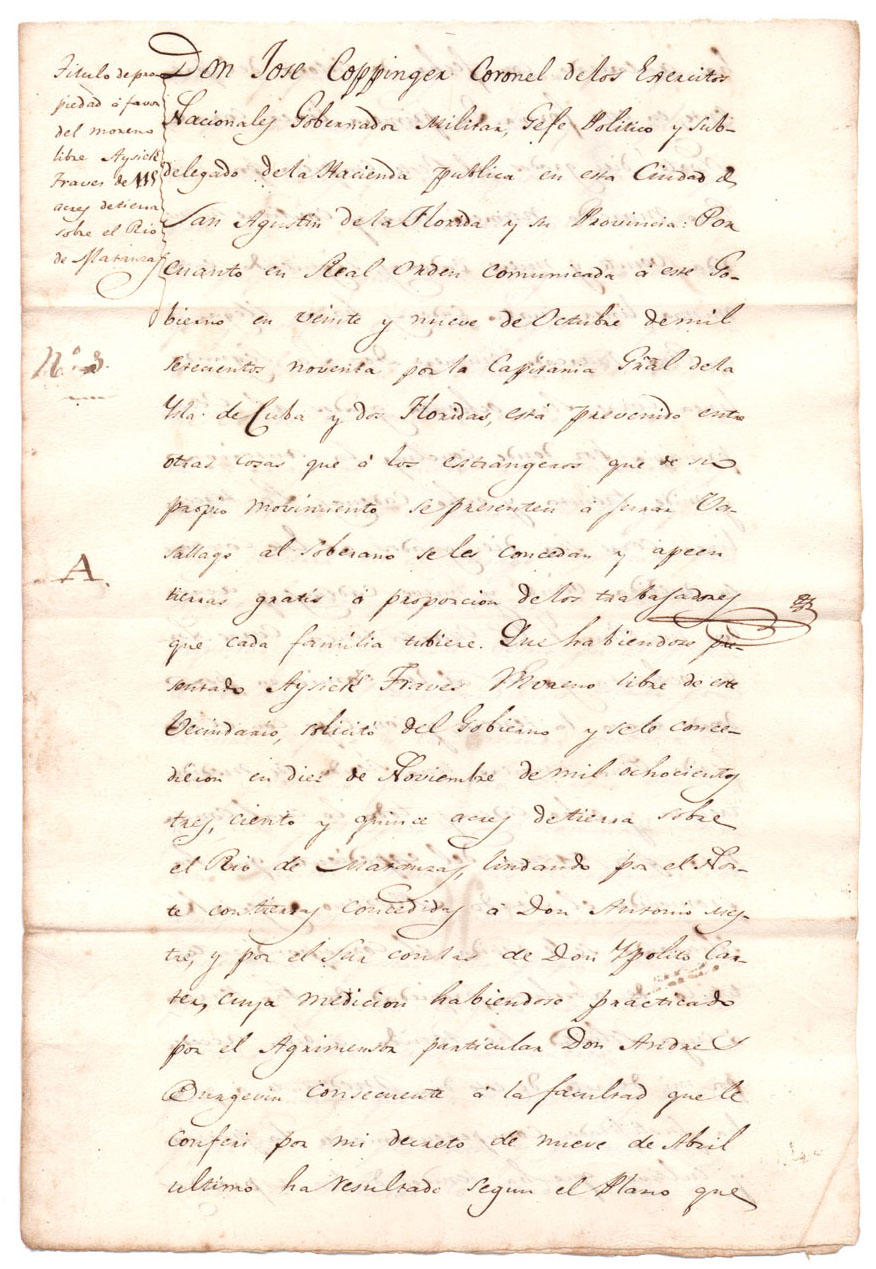 Titulo de pro
piedad á favor
del moreno
libre Aysick
Traves de 115
acres de tierra
sobre el Rio
de Matanzas
Nº 3.
A.
Don Jose Coppinger Coronel de los Exercitos
Nacionales Gobernador Militar, Gefe Politico y sub-
delegado de la Hacienda publica en esta Ciudad de
San Agustin de la Florida y su Provincia: Por
cuanto en Real Orden comunicada á este Go-
bierno en veinte y nueve de Octubre de mil
setecientos noventa por la Capitania Gral de la
Ysla de Cuba y dos Floridas, está prevenido entre
otras cosas que á los estrangeros que de su
propio movimiento se presenten á jurar Va-
sallage al Soberano se les concedan y apeen
tierras gratis á proporcion de los trabajadores
que cada familia tubiere. Que habiendose pre-
sentado Aysick Traves Moreno libre de este
Vecindario, solicitó del Gobierno y se le conce-
dieron en diez de Noviembre de mil ochocientos
tres, ciento y quince acres de tierra sobre
el Rio de Matanzas lindando por el Nor-
te con tierras concedidas á Don Antonio Mes-
tre, y por el Sur con las de Don Ypolito Car-
ter, cuya medicion habiendose practicado
por el Agrimensor particular Don Andres
Burgevin consecuente á la facultad que le
conferi por mi decreto de nueve de Abril
ultimo ha resultado segun el Plano que